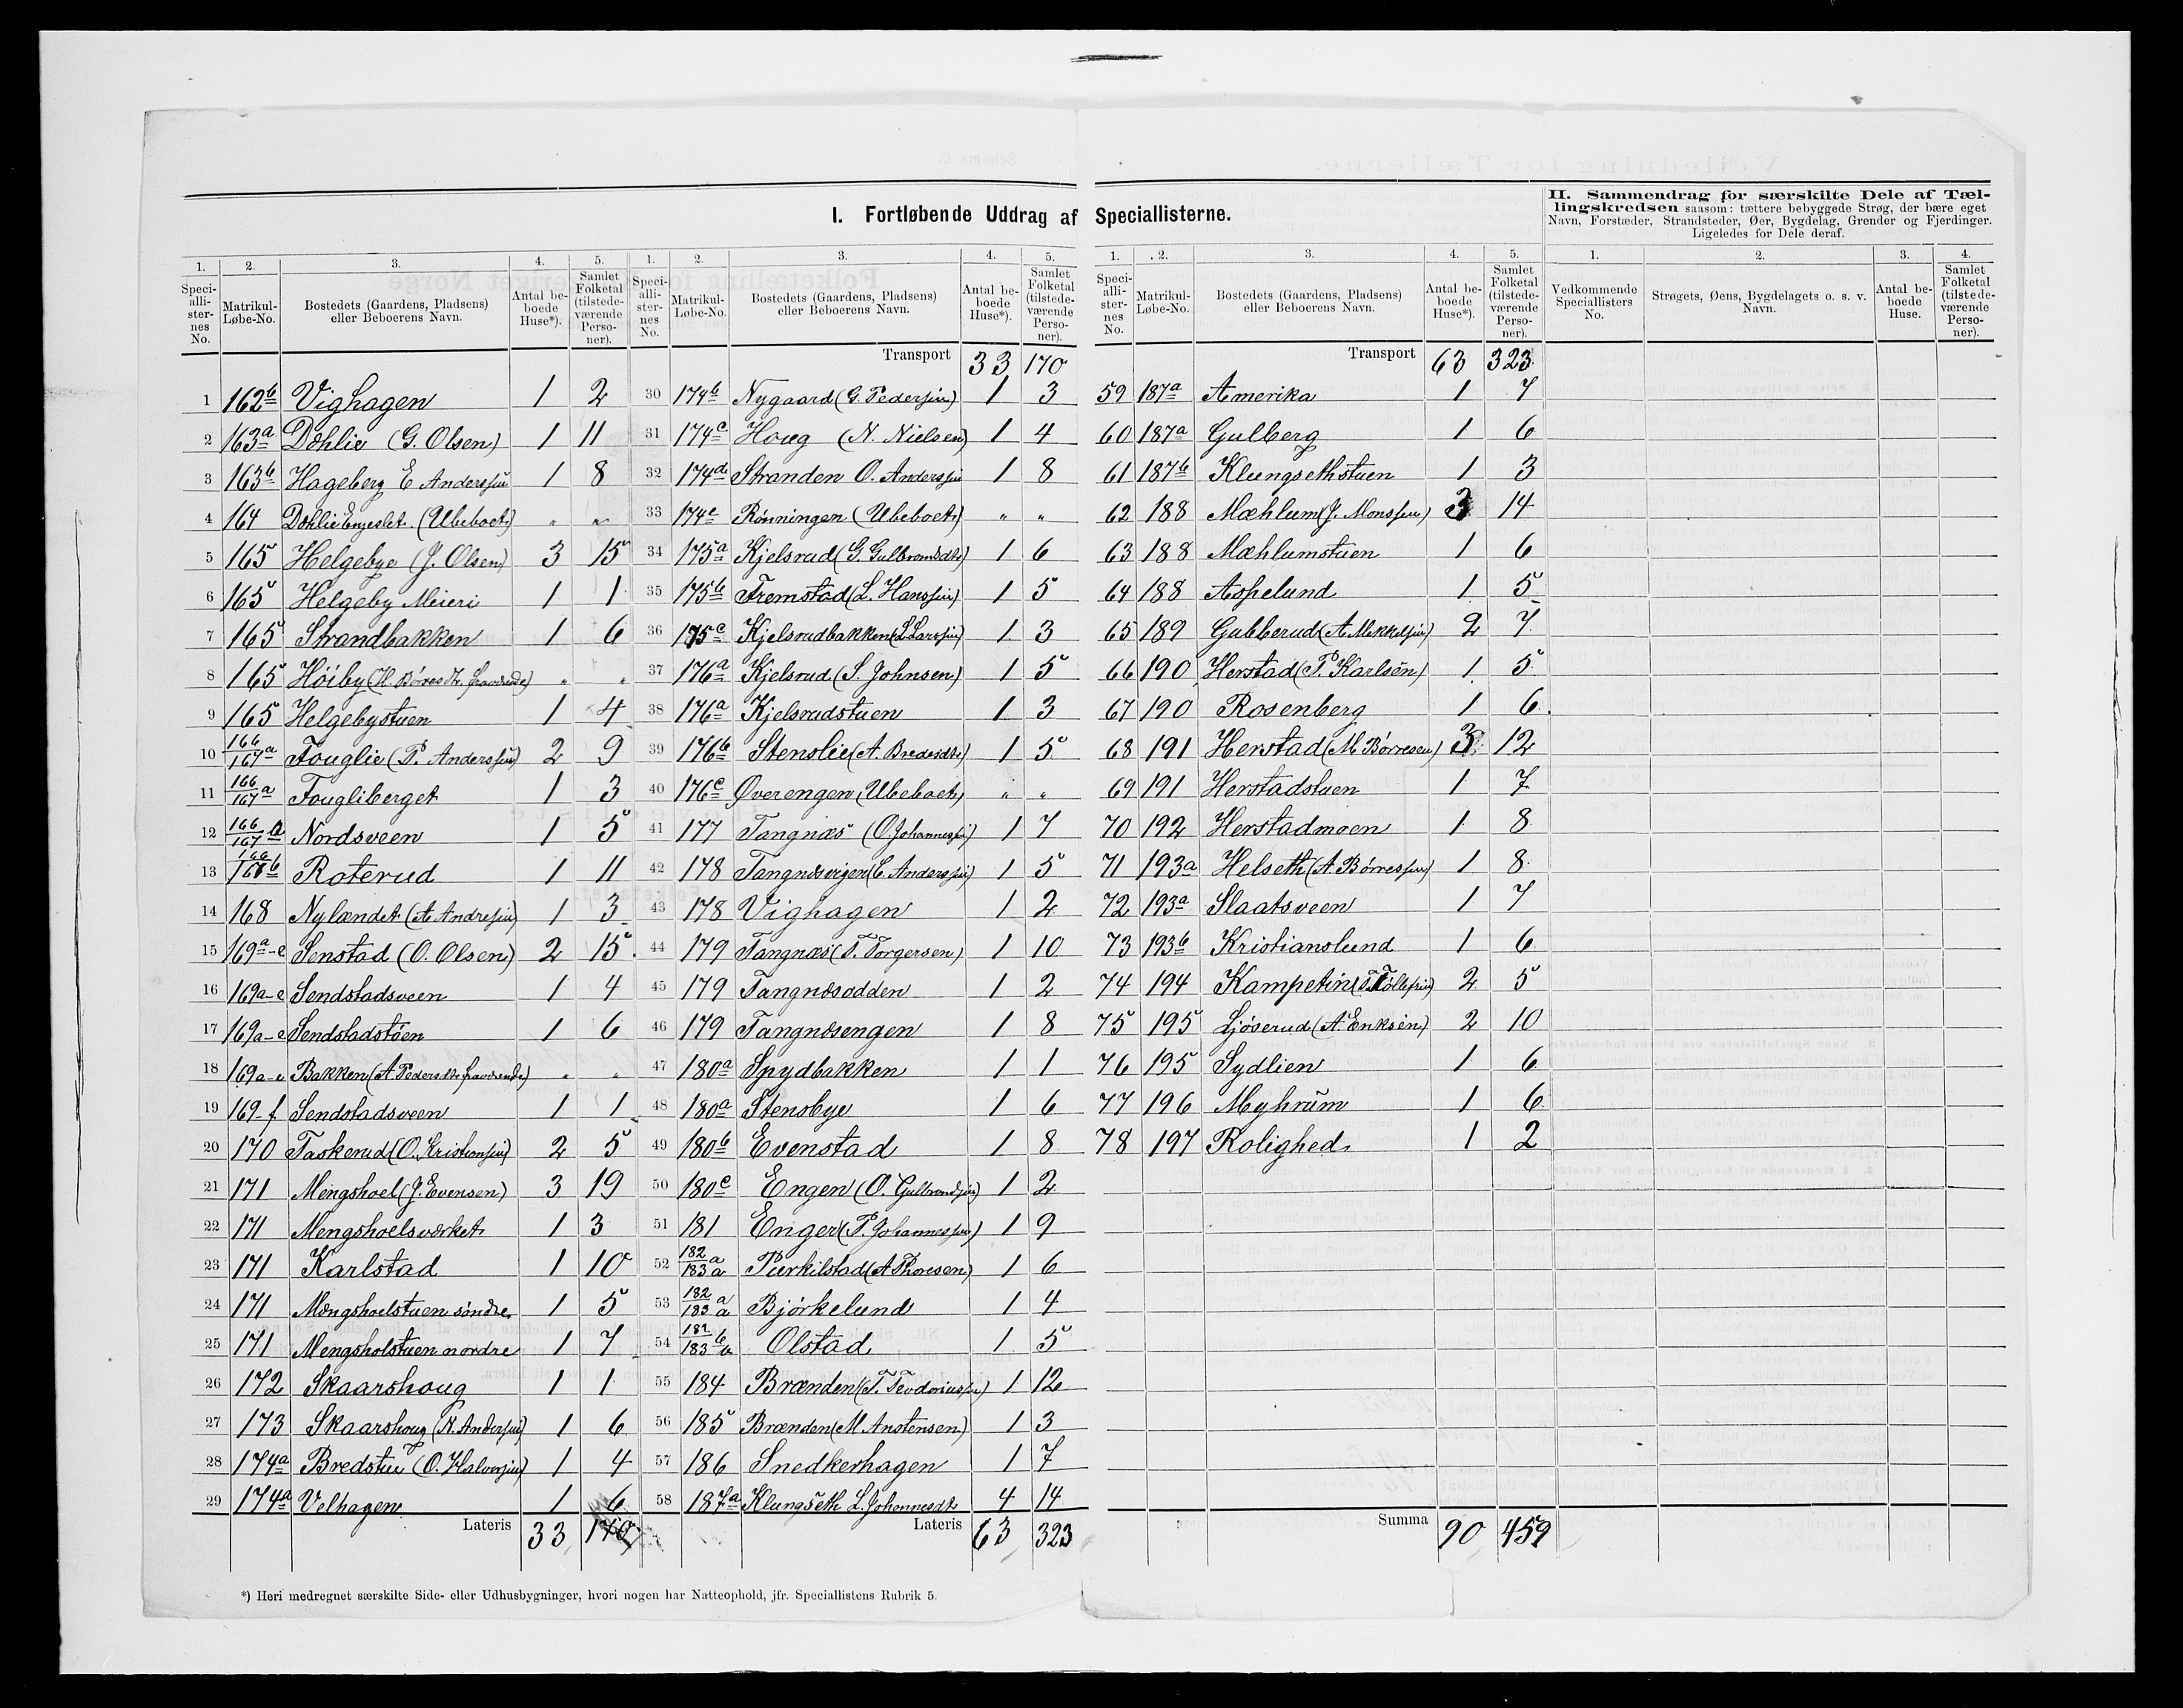 I. Fortløbende Uddrag af Speciallisterne.
II. Sammendrag for særskilte Dele af Tæl-
lingskredsen saasom: tættere bebyggede Strøg, der bære eget
Navn, Forstæder, Strandsteder, Øer, Bygdelag, Grender og Fjerdinger.
Ligeledes for Dele deraf.
1. 2. 3. 4. 5.
Speci-alli-ster-nes No. Matrikul-Løbe-No. Bostedets (Gaardens, Pladsens) eller Beboerens Navn. Antal be-boede Huse*). Samlet Folketal (tilstede-værende Perso-ner).
1 162b Vighagen 1 2
2 163a Dæhlie (G. Olsen) 1 11
3 163b Hageberg E Anderssen 1 8
4 164 Dæhlie Engeslet (Ubeboet) " "
5 165 Helgebye (J. Olsen) 3 15
6 165 Helgeby Meieri 1 1
7 165 Strandbakken 1 6
8 165 Höiby (H. fraværende) " "
9 165 Helgebystuen 1 4
10 166/167a Fouglie (P. Anderssen) 2 9
11 166/167a Fougliberget 1 3
12 166/167a Nordsveen 1 5
13 166/167b Roterud 1 11
14 168 Nylændet (A Andresen) 1 3
15 169a-e Senstad (O. Olsen) 2 15
16 169a-e Sendstadsveen 1 4
17 169a-e Sendstadstöen 1 6
18 169a-e Bakken (A Pedersdt. fraværende) " "
19 169-f Sendstadsveen 1 1
20 170 Taskerud (O. Kristianssen) 2 5
21 171 Mengshoel (J. Evensen) 3 19
22 171 Mengshoelsværket 1 3
23 171 Karlstad 1 10
24 171 Mengshoelstuen söndre 1 5
25 171 Mengsholstuen nordre 1 7
26 172 Skaarshoug 1 1
27 173 Skaarshoug (N. Anderssen) 1 6
28 174a Bredstue (O. Halvorssen) 1 4
29 174a Velhagen 1 6
Lateris 33 170
1. 2. 3. 4. 5.
Speci-alli-ster-nes No. Matrikul-Løbe-No. Bostedets (Gaardens, Pladsens) eller Beboerens Navn. Antal be-boede Huse*). Samlet Folketal (tilstede-værende Perso-ner).
Transport 33 170
30 174b Nygaard (G. Pederssen) 1 3
31 174c Houg (N. Nielsen) 1 4
32 174d Stranden O. Anderssen 1 8
33 174e Rönningen (Ubeboet) " "
34 175a Kjelsrud (G. Gulbrandsdt.) 1 6
35 175b Fremstad (L. Hanssen) 1 5
36 175c Kjelsrudbakken (L Larssen) 1 3
37 176a Kjelsrud (S. Johnsen) 1 5
38 176a Kjelsrudstuen 1 3
39 176b Stenslie (A. Bredesdt.) 1 5
40 176c Øverengen (Ubeboet) " "
41 177 Tangnæs (O. Johannessen) 1 7
42 178 Tangnæsvigen (C. Anderssen) 1 5
43 178 Vighagen 1 2
44 179 Tangnæs (T. Torgersen) 1 10
45 179 Tangnæsodden 1 2
46 179 Tangnæsengen 1 8
47 180a Snydbakken 1 1
48 180a Stensbye 1 6
49 180b Evenstad 1 8
50 180c Engen (O. Gulbrandssen) 1 2
51 181 Enger (P. Johannessen) 1 9
52 182/183 a a Purkilstad (A Thoresen) 1 6
53 182/183 a a Bjórkelund 1 4
54 182/183 b a Olstad 1 5
55 184 Brænden (T. Teodoriussen) 1 12
56 185 Brænden (M Anstensen) 1 3
57 186 Snedkerhagen 1 7
58 187a Klungseth L. Johannesdt. 4 14
Lateris 63 323
1. 2. 3. 4. 5.
Speci-alli-ster-nes No. Matrikul-Løbe-No. Bostedets (Gaardens, Pladsens) eller Beboerens Navn. Antal be-boede Huse*). Samlet Folketal (tilstede-værende Perso-ner).
Transport 63 323
59 187a Amerika 1 7
60 187a Gulberg 1 6
61 187b Klungsethstuen 1 3
62 188 Mæhlum (J. Monssen) 3 14
63 188 Mæhlumstuen 1 6
64 188 Aspelund 1 5
65 189 Gubberud (A Mikkelsen) 2 7
66 190 Herstad (P. Karlsen) 1 5
67 190 Rosenberg 1 6
68 191 Herstad (M Börresen) 3 12
69 191 Herstadstuen 1 7
70 192 Herstadmoen 1 8
71 193a Helseth (A. Börressen) 1 8
72 193a Slaatsveen 1 7
73 193b Kristianslund 1 6
74 194 Kampetin (T. Töllefsen) 2 5
75 195 Ljöserud (A. Eriksen) 2 10
76 195 Sydlien 1 6
77 196 Myhrum 1 6
78 197 Rolighed 1 2
Summa 90 459
1. 2. 3. 4.
Vedkommende Speciallisters No. Strøgets, Øens, Bygdelagets o. s. v. Navn. Antal be-boede Huse. Samlet Folketal (tilstede-værende Perso-ner).
*) Heri medregnet særskilte Side- eller Udhusbygninger, hvori nogen har Natteophold, jfr. Speciallistens Rubrik 5.